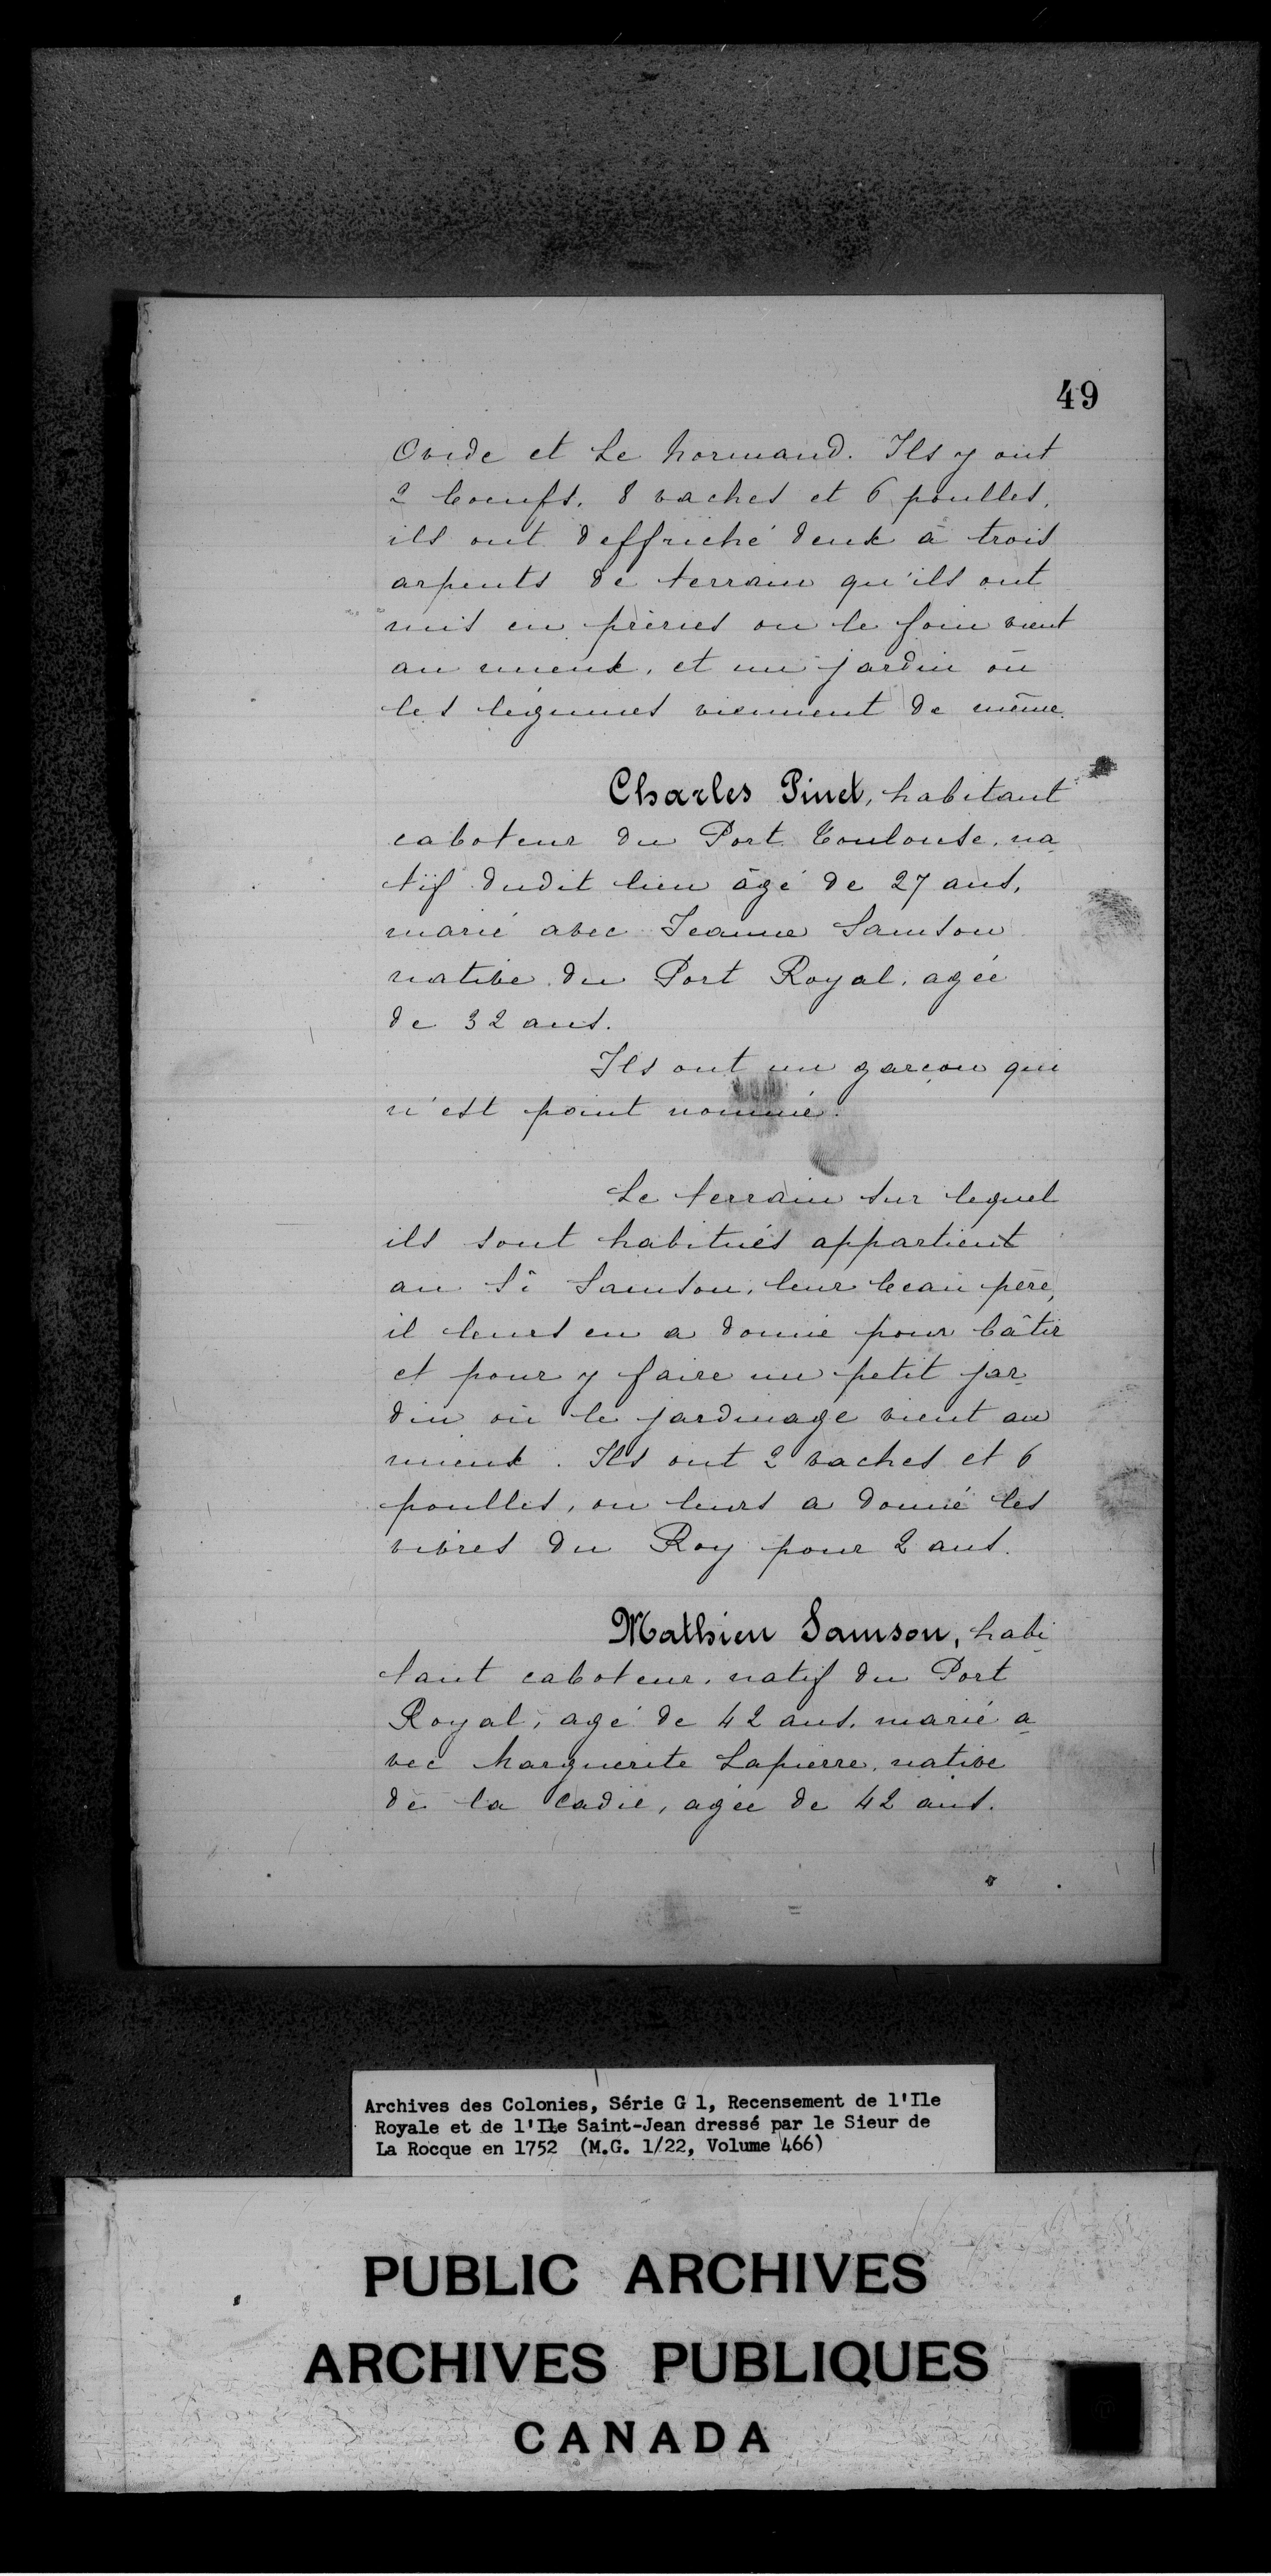 49
Ovide et Le Normand. Ils y ont
2 boeufs, 8 vaches et 6 poulles,
ils ont deffriché deux à trois
arpents de terrain qu'ils ont
mis en prèries ou le foin vient
au mieux, et un jardin où
les légumes viennent de même.
Charles Pinet, habitant
caboteur du Port Toulouse, na
tif dudit lieu âgé de 27 ans,
marié avec Jeanne Samson
native du Port Royal, agée
de 32 ans.
Ils ont un garçon qui
n'est point nommé.
Le terrain sur lequel
ils sont habitués appartient
au Sr Samson, leur beau père,
il leurs en a donné pour bâtir
et pour y faire un petit jar
din où le jardinage vient au
mieux. Ils ont 2 vaches et 6
poulles, on leurs a donné les
vivres du Roy pour 2 ans.
Mathieu Samson, habi
tant caboteur, natif du Port
Royal, agé de 42 ans, marié a
vec Marguerite Lapierre, native
de la Cadie, agée de 42 ans.
Archives des Colonies, Série G 1, Recensement de l'Ile
Royale et de l'Ile Saint-Jean dressé par le Sieur de
La Rocque en 1752 (M.G. 1/22, Volume 466)
PUBLIC ARCHIVES
ARCHIVES PUBLIQUES
CANADA